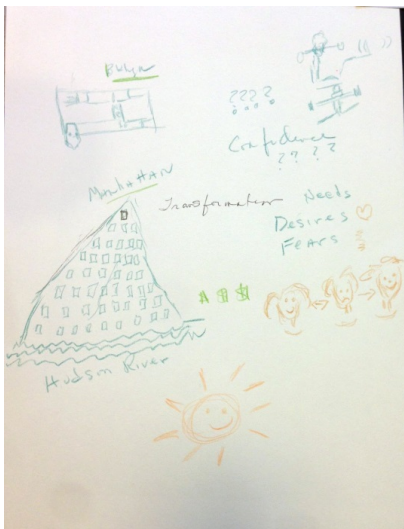 ????
Confidence
????
ManhaTTAN
Transformation
Needs
Desires
FEARS
Hudson River